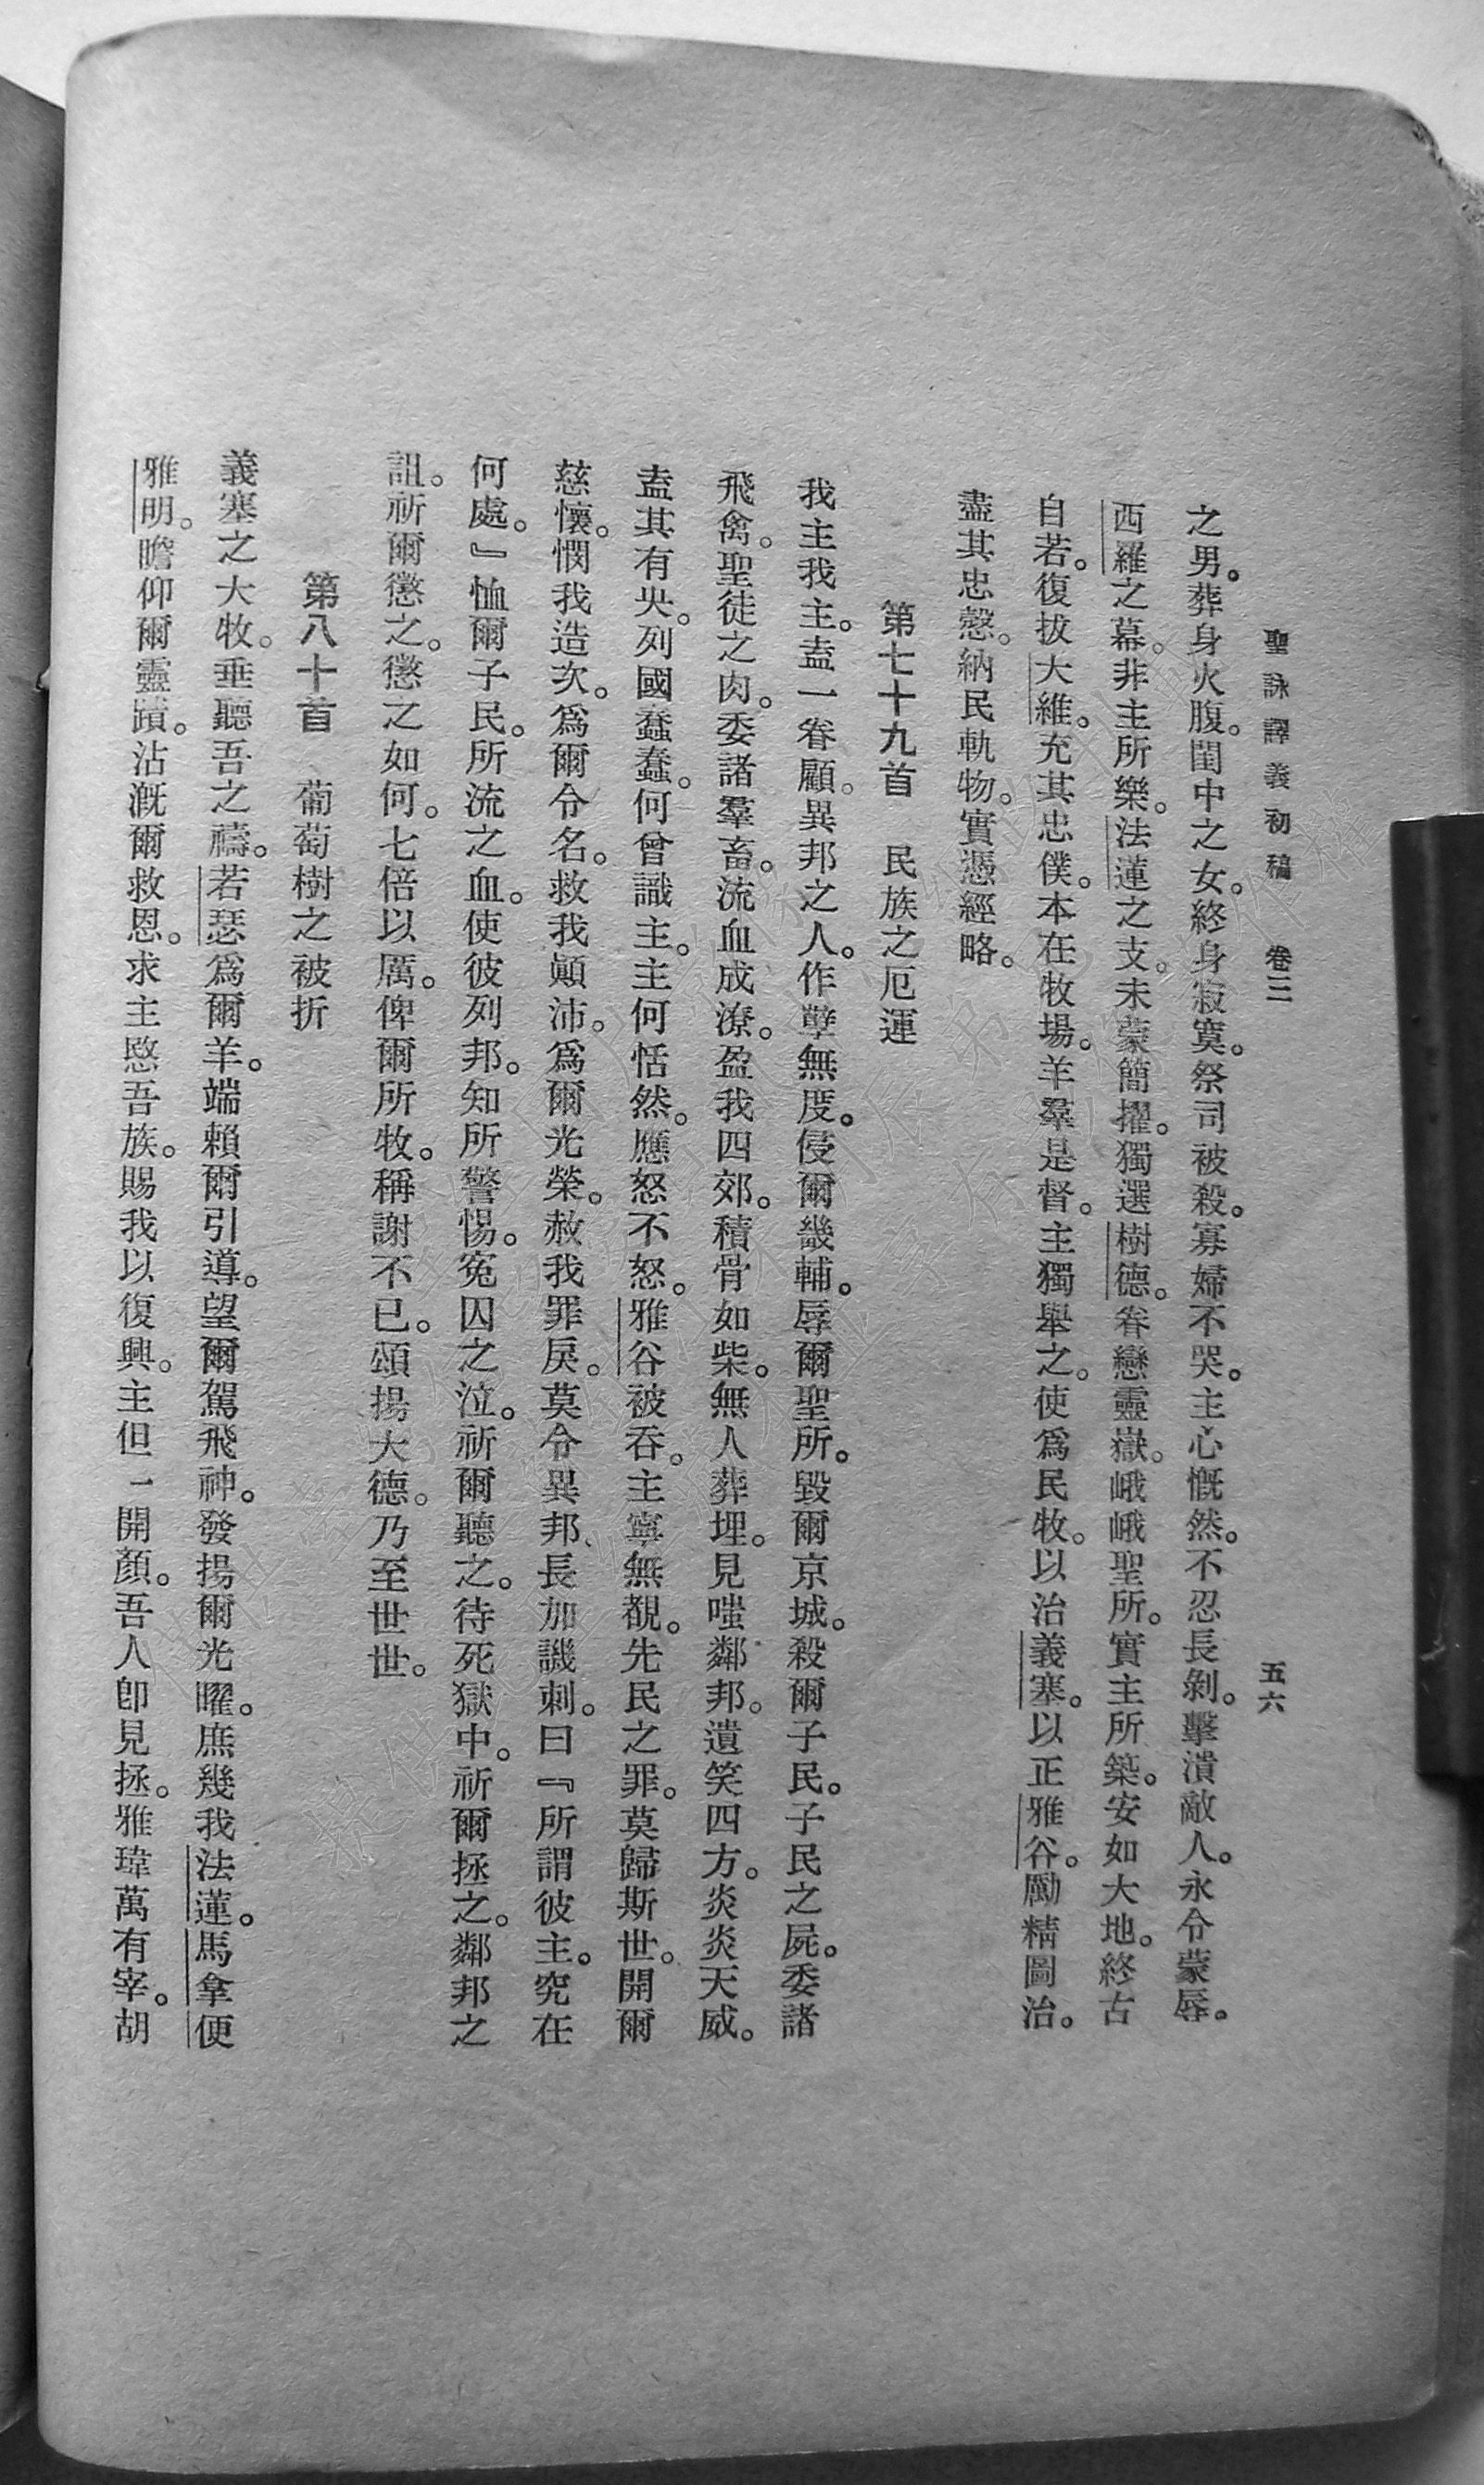 聖詠譯義初稿　卷三　五六
之男。葬身火腹。閨中之女。終身寂寞。祭司被殺。寡婦不哭。主心慨然。不忍長剝。擊潰敵人。永令蒙辱。
西羅之幕。非主所樂。法蓮之支。未蒙簡擢。獨選樹德。眷戀靈嶽。峨峨聖所。實主所築。安如大地。終古
自若。復拔大維。充其忠僕。本在牧場。羊羣是督。主獨舉之。使爲民牧。以治義塞。以正雅谷。勵精圖治。
盡其忠慤。納民軌物。實憑經略。
第七十九首　民族之厄運
我主我主。盍一眷顧。異邦之人。作孽無度。侵爾畿輔。辱爾聖所。毀爾京城。殺爾子民。子民之屍。委諸
飛禽。聖徒之肉。委諸羣畜。流血成潦。盈我四郊。積骨如柴。無人葬埋。見嗤鄰邦。遺笑四方。炎炎天威。
盍其有央。列國蠢蠢。何曾識主。主何恬然。應怒不怒。雅谷被吞。主寧無覩。先民之罪。莫歸斯世。開爾
慈懷。憫我造次。爲爾令名。救我顚沛。爲爾光榮。赦我罪戾。莫令異邦、長加譏刺。曰『所謂彼主。究在
何處。』恤爾子民。所流之血。使彼列邦。知所警惕。冤囚之泣。祈爾聽之。待死獄中。祈爾拯之。鄰邦之
詛。祈爾懲之。懲之如何。七倍以厲。俾爾所牧。稱謝不已。頌揚大德。乃至世世。
第八十首　葡萄樹之被折
義塞之大牧。垂聽吾之禱。若瑟爲爾羊。端賴爾引導。望爾駕飛神。發揚爾光曜。庶幾我法蓮。馬拿便
雅明。瞻仰爾靈蹟。沾漑爾救恩。求主愍吾族。賜我以復興。主但一開顏。吾人卽見拯。雅瑋萬有宰。胡